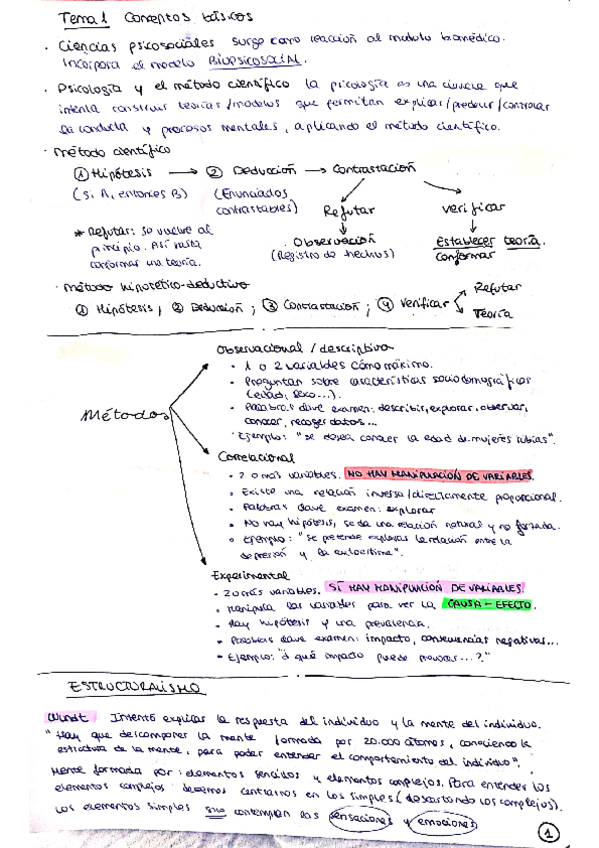 Tema 1 Conceptos básicos
· Ciencias psicosociales surge como reacción al modelo biomédico.
Incorpora el modelo BIOPSICOSOCIAL.
· Psicología y el método científico la psicología es una ciencia que
intenta construir teorías/modelos que permitan explicar/predecir/controlar
la conducta y procesos mentales, aplicando el método científico.
· Método científico
① Hipótesis → ② Deducción → Contrastación
(Si A, entonces B) (Enunciados
contrastables)
Refutar verificar
* Refutar: se vuelve al
principio. Así hasta
conformar una teoría.
Observación
(Registro de hechos)
Establecer teoría.
conformar
· Método hipotético-deductivo
① Hipótesis; ② Deducción; ③ Contrastación; ④ Verificar
Refutar
Teoría
Métodos
Observacional / descriptivo
· 1 o 2 variables cómo máximo.
· Preguntan sobre características sociodemográficas
(edad, sexo...).
· Palabras clave examen: describir, explorar, observar,
conocer, recoger datos...
Ejemplo: "se desea conocer la edad de mujeres rubias".
Correlacional
· 2 o más variables. NO HAY MANIPULACIÓN DE VARIABLES.
· Existe una relación inversa/directamente proporcional.
· Palabras clave examen: explorar
· No hay hipótesis, se da una relación natural y no forzada.
· Ejemplo: "se pretende explorar la relación entre la
depresión y la autoestima".
Experimental
· 2 o más variables. SÍ HAY MANIPULACIÓN DE VARIABLES.
· Manipula las variables para ver la CAUSA-EFECTO.
· Hay hipótesis y una
· Palabras clave examen: impacto, consecuencias negativas...
· Ejemplo: "¿qué impacto puede ...?"
ESTRUCTURALISMO
Wundt Intentó explicar la respuesta del individuo y la mente del individuo.
"Hay que descomponer la mente formada por 20.000 átomos, conociendo la
estructura de la mente, para poder entender el comportamiento del individuo".
Mente formada por: elementos sencillos y elementos complejos. Para entender los
elementos complejos debemos centrarnos en los simples (descartando los complejos).
Los elementos simples contemplan las sensaciones y emociones
①